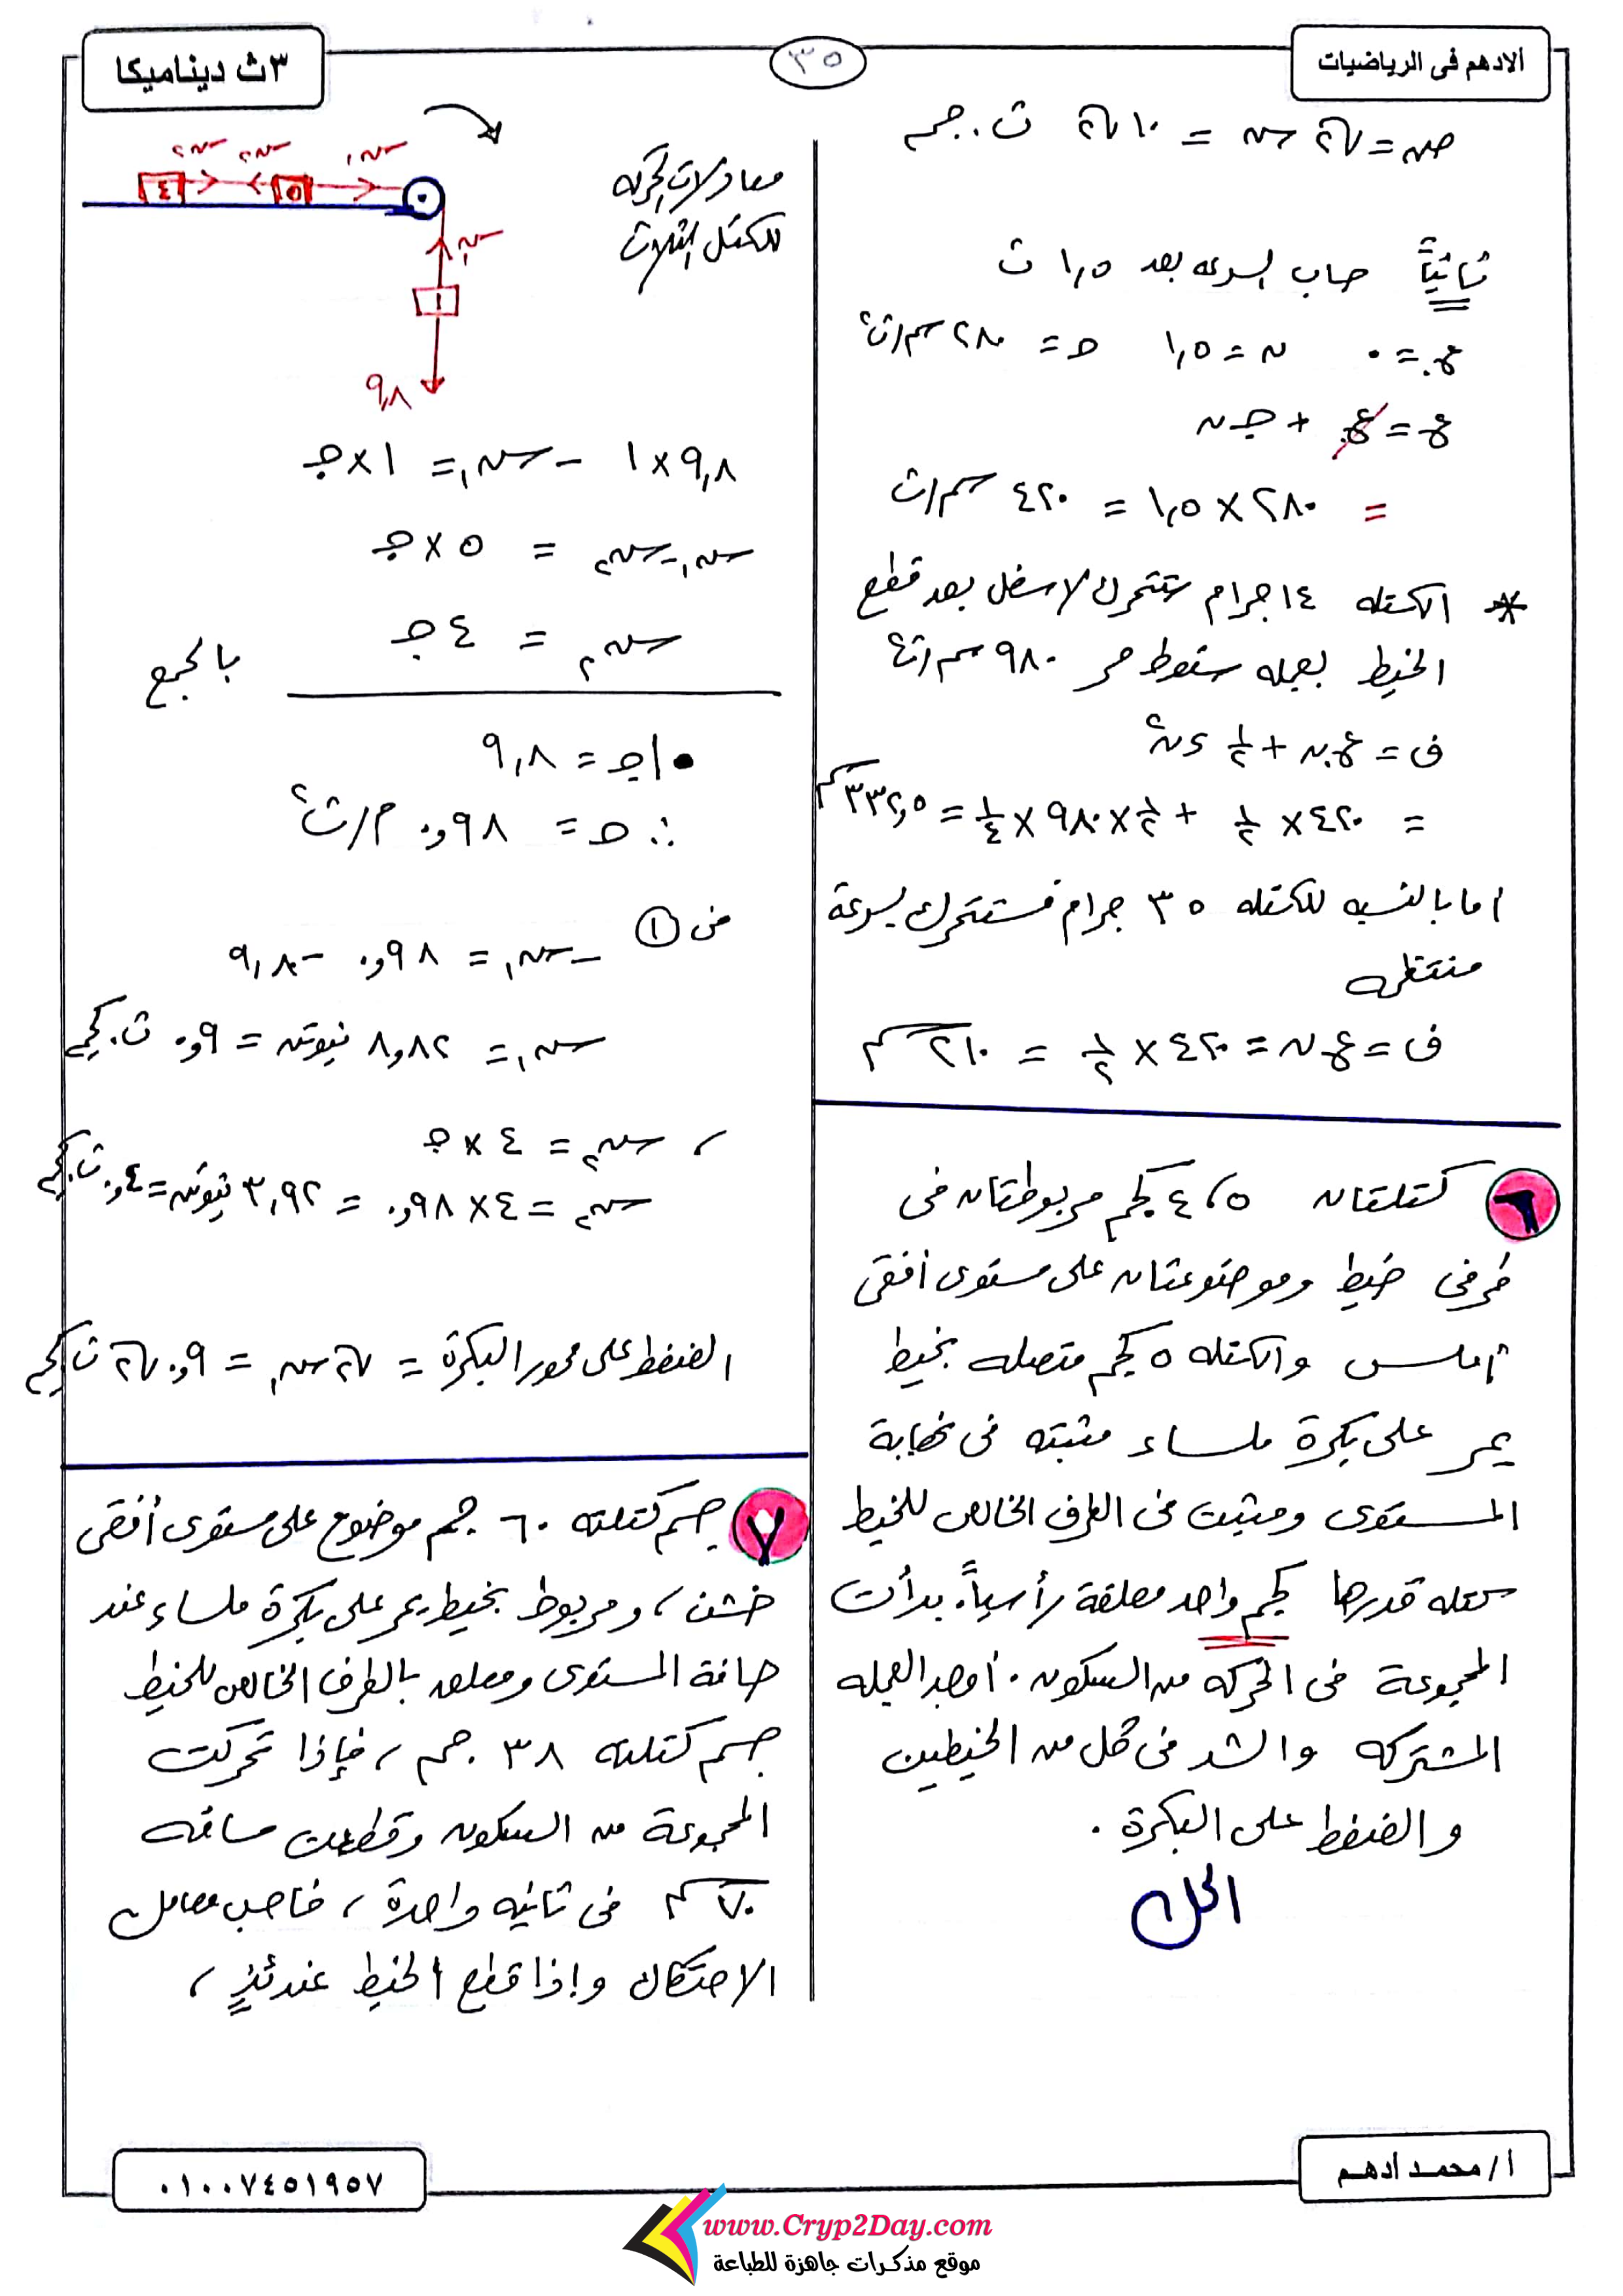 الادهم فى الرياضيات
٣٥
٣ث ديناميكا
ض = √٢ ش = ١٠ √٢ ث.جم
ثانياً حساب السرعه بعد ١,٥ ث
ع. = ٠ ن = ١,٥ حـ = ٢٨٠ سم/ث٢
ع = ع. + جـ ن
= ٢٨٠ × ١,٥ = ٤٢٠ سم/ث
* الكتله ١٤ جرام ستتحرك لاسفل بعد قطع
الخيط بعجله سقوط حر ٩٨٠ سم/ث٢
ف = ع.ن + ١/٢ ء ن٢
= ٤٢٠ × ١/٢ + ١/٢ × ٩٨٠ × ١/٤ = ٣٣٢,٥ سم
اما بالنسبه للكتله ٣٥ جرام فستتحرك بسرعة
منتظمه
ف = ع ن = ٤٢٠ × ١/٢ = ٢١٠ سم
٦ كتلتان ٥ ، ٤ كجم مربوطتان فى
طرفى خيط وموضوعتان على مستوى افقى
أملس والكتله ٥ كجم متصله بخيط
يمر على بكرة ملساء مثبته فى نهاية
المستوى ومثبت فى الطرف الخالص للخيط
كتله قدرها كجم واحد معلقة رأسياً. بدأت
المجموعة فى الحركه من السكون. أوجد العجله
المشتركه والشد فى كل من الخيطين
والضغط على البكرة.
الحل
معادلات الحركه
للكتل الثلاث
٤ ش٢ ش٢ ٥ ش١
ش١
١
٩,٨
٩,٨ × ١ - ش١ = ١ × جـ
ش١ - ش٢ = ٥ × جـ
ش٢ = ٤ جـ
بالجمع
١٠ جـ = ٩,٨
∴ حـ = ٠,٩٨ م/ث٢
من ① - ش١ = ٠,٩٨ - ٩,٨
ش١ = ٨,٨٢ نيوتن = ٠,٩ ث.كجم
، ش٢ = ٤ × جـ
ش٢ = ٤ × ٠,٩٨ = ٣,٩٢ نيوتن = ٠,٤ ث.كجم
الضغط على محور البكرة = √٢ ش١ = ٠,٩ √٢ ث كجم
٧ جسم كتلته ٦٠ جم موضوع على مستوى أفقى
خشن ، ومربوط بخيط يمر على بكرة ملساء عند
حافة المستوى ومعلق بالطرف الخالص للخيط
جسم كتلته ٣٨ جم ، فإذا تحركت
المجموعة من السكون وقطعت مسافه
٧٠ سم فى ثانيه واحدة ، فاحسب معامل
الاحتكاك وإذا قطع الخيط عندئذٍ ،
أ/ محمد أدهم
٠١٠٠٧٤٥١٩٥٧
www.Cryp2Day.com
موقع مذكرات جاهزة للطباعة